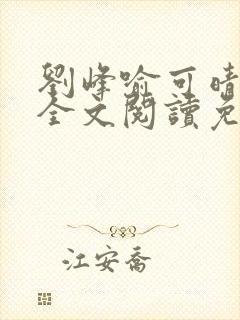 劉峰喻可晴
全文閱讀免
江安喬